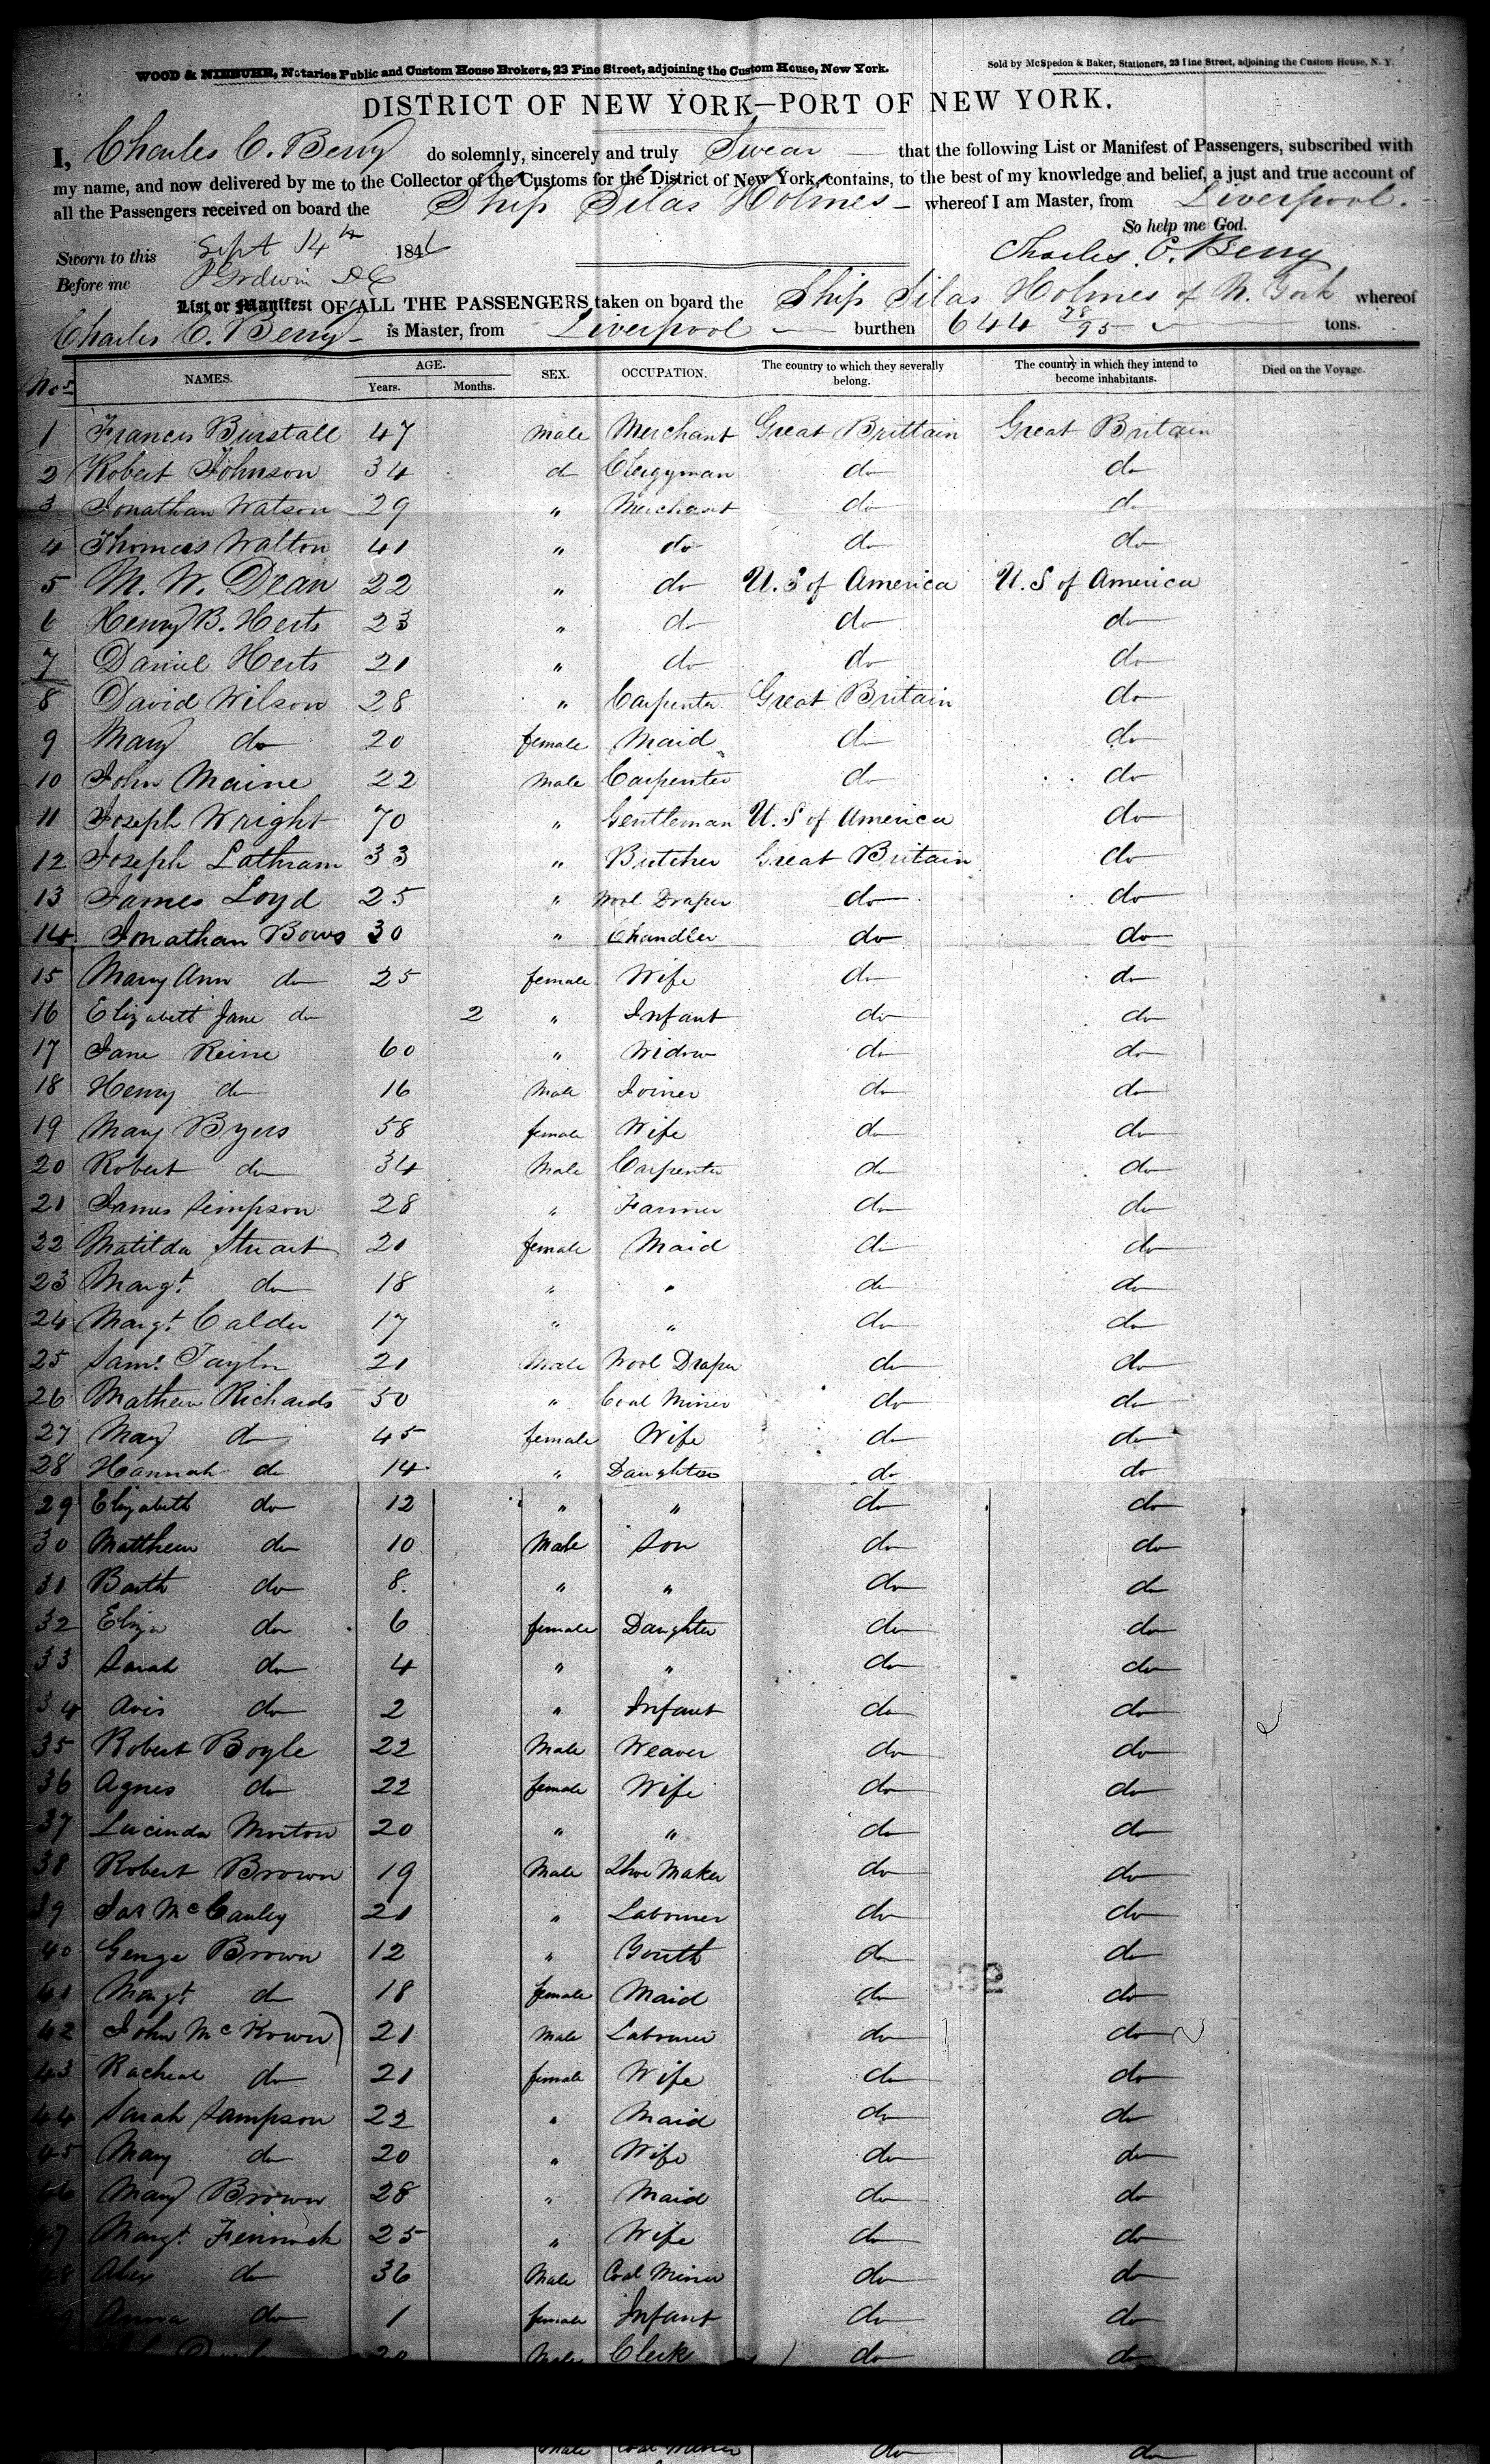 WOOD & NIEBUHR, Notaries Public and Custom House Brokers, 23 Pine Street, adjoining the Custom House, New York.
Sold by McSpedon & Baker, Stationers, 23 Pine Street, adjoining the Custom House, N. Y.
DISTRICT OF NEW YORK—PORT OF NEW YORK.
I, Charles C. Berry do solemnly, sincerely and truly Swear that the following List or Manifest of Passengers, subscribed with
my name, and now delivered by me to the Collector of the Customs for the District of New York, contains, to the best of my knowledge and belief, a just and true account of
all the Passengers received on board the Ship Silas Holmes whereof I am Master, from Liverpool.
So help me God.
Sworn to this Sept 14th 184 Charles C. Berry
Before me
List or Manifest OF ALL THE PASSENGERS taken on board the Ship Silas Holmes of N. York whereof
Charles C. Berry is Master, from Liverpool burthen 644 78/95 tons.
Nos NAMES. AGE. Years. Months. SEX. OCCUPATION. The country to which they severally belong. The country in which they intend to become inhabitants. Died on the Voyage.
1 Francis Burstall 47 Male Merchant Great Brittain Great Britain
2 Robert Johnson 34 d Clergyman do do
3 Jonathan Watson 29 " Merchant do do
4 Thomas Walton 41 " do do do
5 M. W. Dean 22 " do U. S of America U. S of America
6 Henry B. Herts 23 " do do do
7 Daniel Herts 21 " do do do
8 David Wilson 28 " Carpenter Great Britain do
9 Mary do 20 female Maid do do
10 John Maine 22 Male Carpenter do do
11 Joseph Wright 70 " Gentleman U. S of America do
12 Joseph Lathram 33 " Butcher Great Britain do
13 James Loyd 25 " Wool Draper do do
14 Jonathan Bows 30 " Chandler do do
15 Mary Ann do 25 female Wife do do
16 Elizabeth Jane do 2 " Infant do do
17 Jane Reine 60 " Widow do do
18 Henry do 16 Male Joiner do do
19 Mary Byers 58 female Wife do do
20 Robert do 34 Male Carpenter do do
21 James Simpson 28 " Farmer do do
22 Matilda Stuart 21 female Maid do do
23 Margt. do 18 " " do do
24 Margt. Calder 17 " " do do
25 Saml. Taylor 21 Male Wool Draper do do
26 Mathew Richards 50 " Coal Miner do do
27 Mary do 45 female Wife do do
28 Hannah do 14 " Daughter do do
29 Elizabeth do 12 " " do do
30 Matthew do 10 Male Son do do
31 Barth do 8. " " do do
32 Eliza do 6 female Daughter do do
33 Sarah do 4 " " do do
34 Avis do 2 " Infant do do
35 Robert Boyle 22 Male Weaver do do
36 Agnes do 22 female Wife do do
37 Lucinda Morton 20 " " do do
38 Robert Brown 19 Male Shoe Maker do do
39 Jas McCauley 21 " Labourer do do
40 George Brown 12 " Youth do do
41 Margt. do 18 female Maid do do
42 John McKown 21 Male Labourer do do
43 Racheal do 21 female Wife do do
44 Sarah Sampson 22 " Maid do do
45 Mary do 20 " Wife do do
46 Mary Brown 28 " Maid do do
47 Margt. 25 " Wife do do
48 Alex do 36 Male Coal Miner do do
Anna do 1 female Infant do do
Male Clerk do do
Male Coal Miner do do